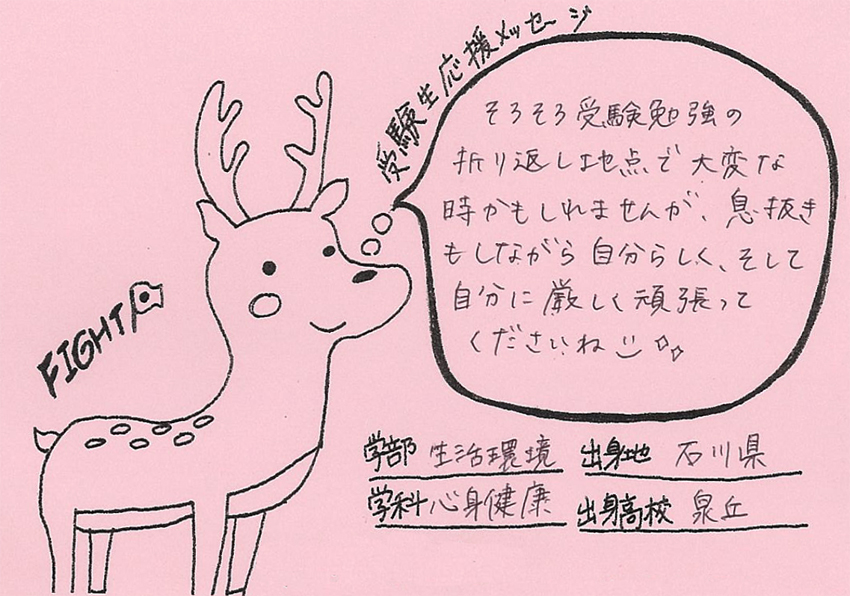 受験生応援メッセージ
そろそろ受験勉強の
折り返し地点で大変な
時かもしれませんが、息抜き
もしながら自分らしく、そして
自分に厳しく頑張って
くださいね
FIGHT
学部 生活環境 出身地 石川県
学科 心身健康 出身高校 泉丘